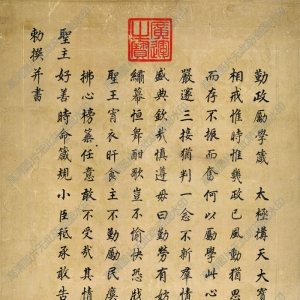 勤政勵學箴 太極構天大寶
相戒惟時惟與政已風動猶思
而存不振而奮何以勵學此心
嚴邃三接猶判一念不新群情
盛典欽哉慎遵毋曰勤勞有妨
繡幕恒舞酣歌豈不愉快恐戕
聖王宵衣旰食主不勤勵民
拂心榜任意敢不受哉其情
聖主好善時命箴規小臣祗承敢告
勅撰并書
廣運之寶